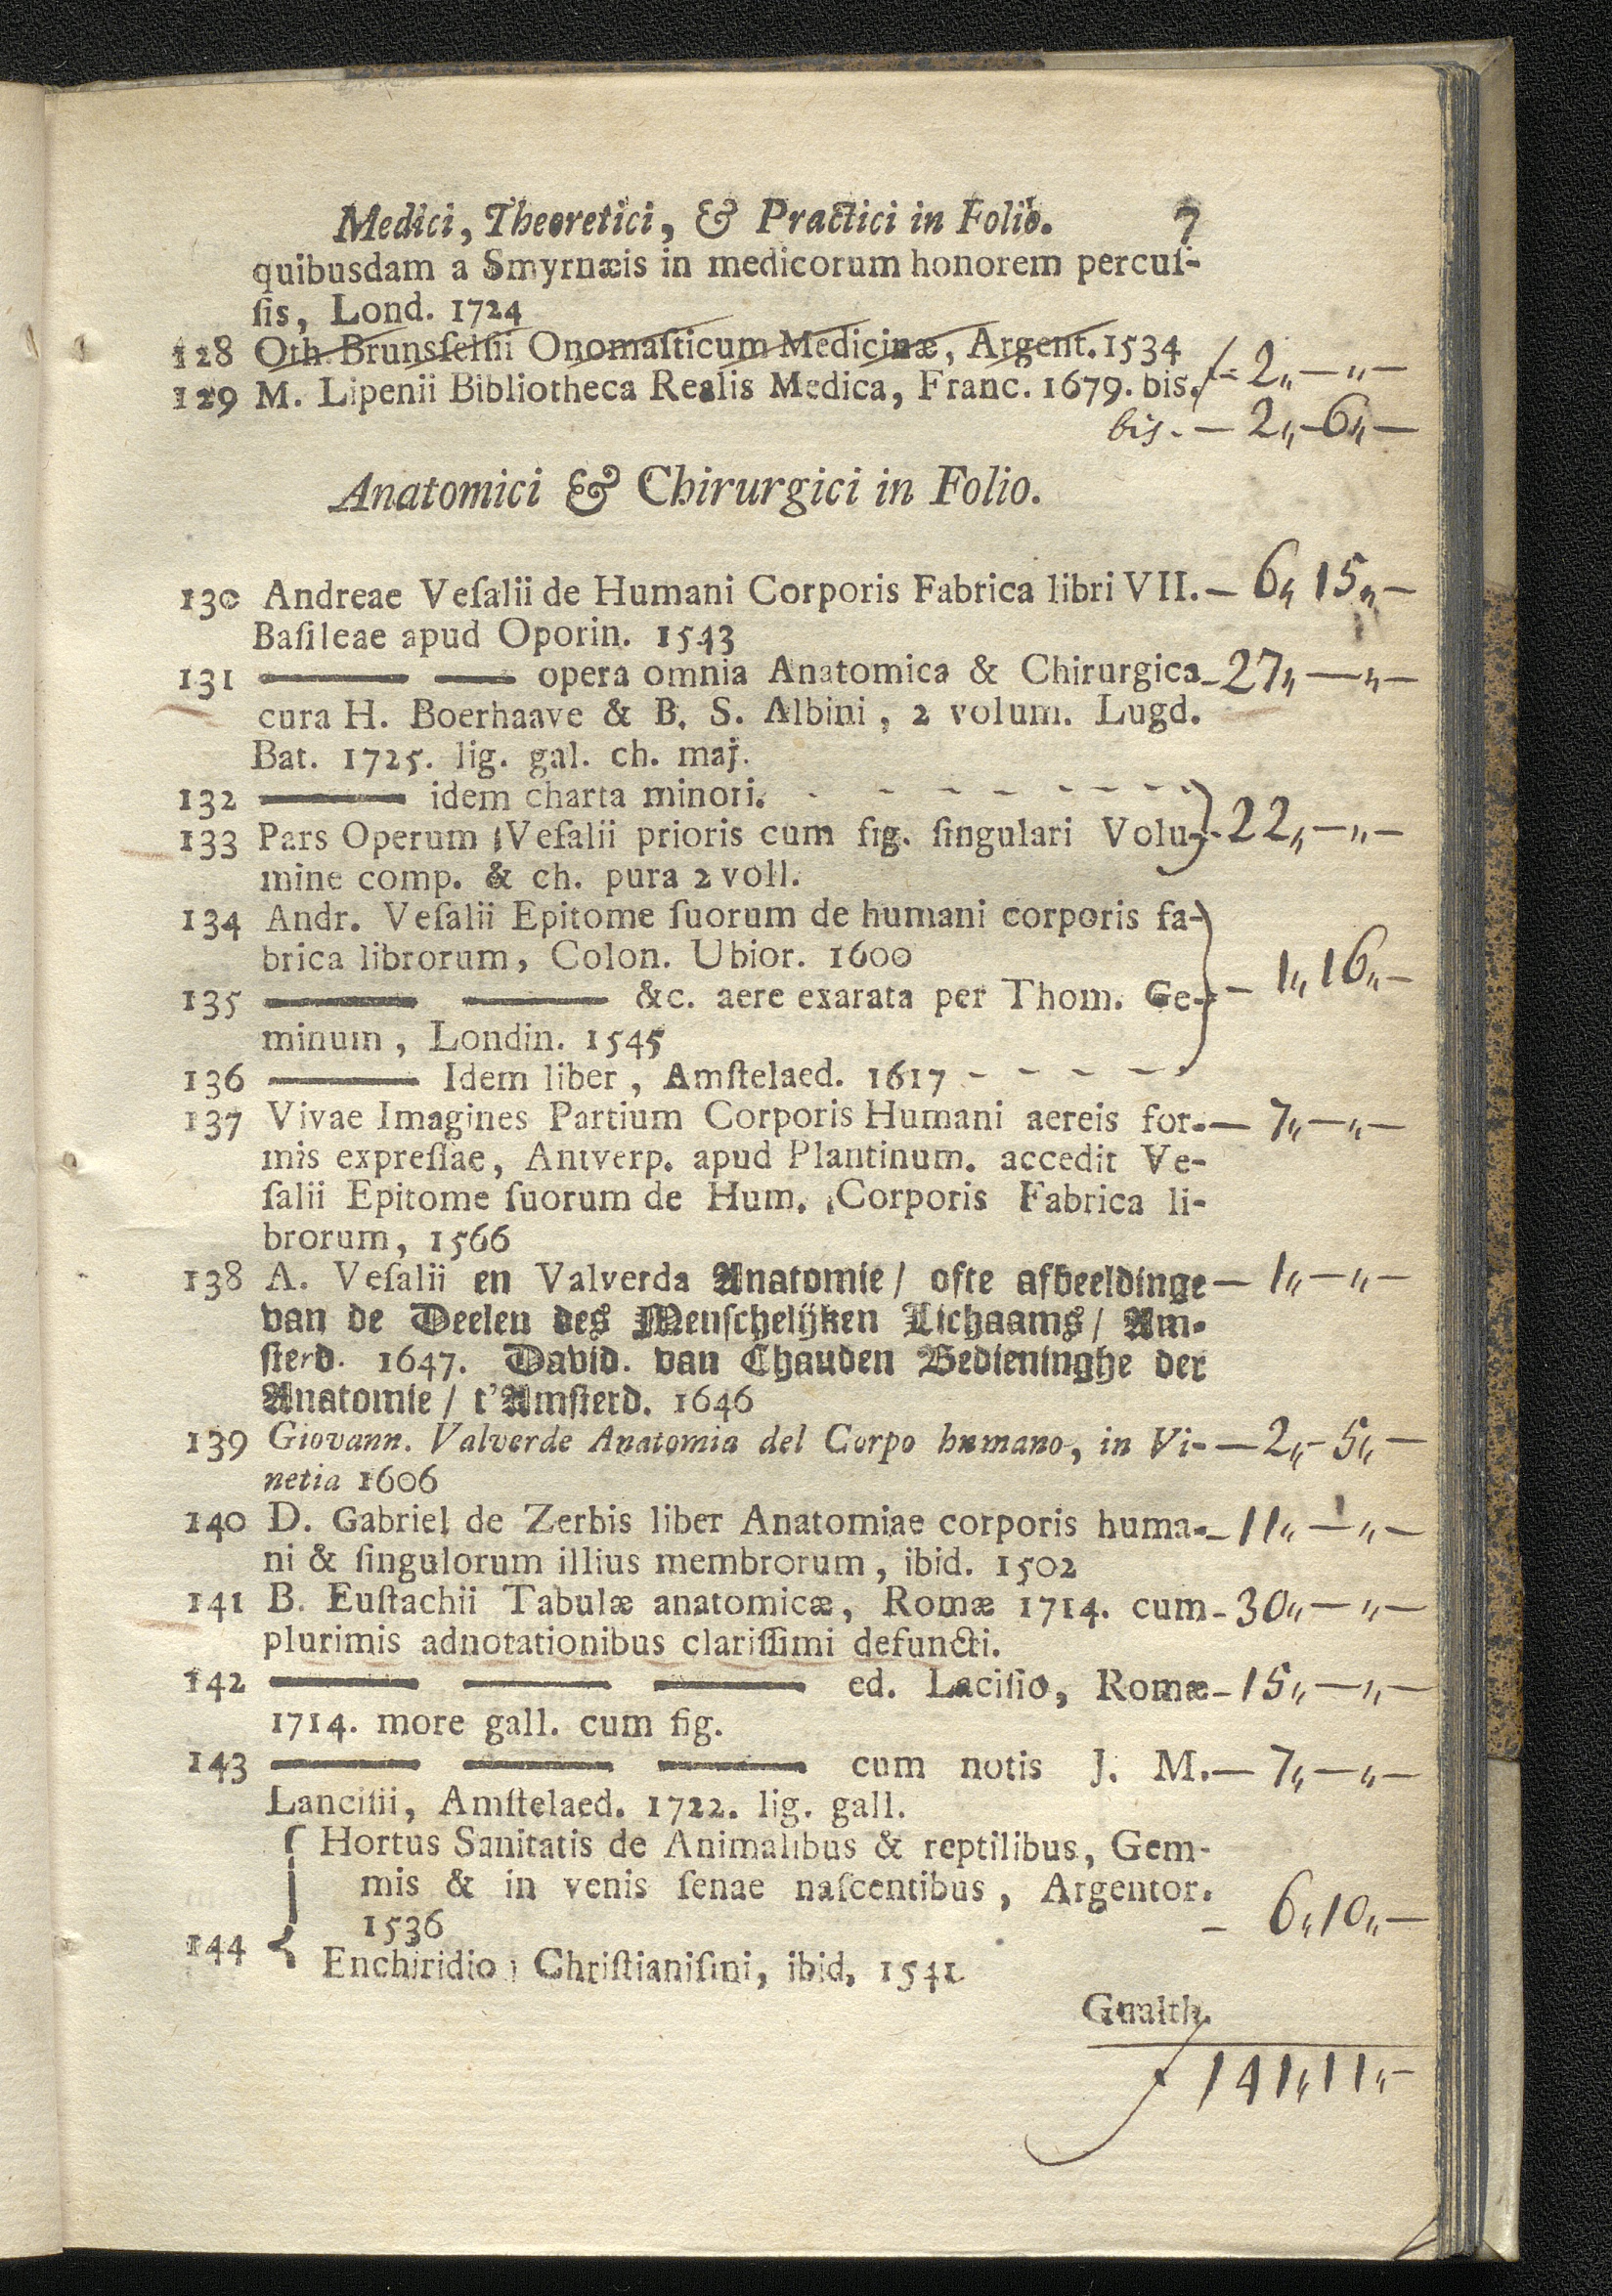 Medici, Theoretici, & Practici in Folio. 7
quibusdam a Smyrnæis in medicorum honorem percuſ-
ſis, Lond. 1724
128 Oth. Brunsfelſii Onomaſticum Medicinæ, Argent. 1534
129 M. Lipenii Bibliotheca Realis Medica, Franc. 1679. bis. - 2,, — ,, —
bis. — 2,, — 6,, —
Anatomici & Chirurgici in Folio.
130 Andreae Veſalii de Humani Corporis Fabrica libri VII. — 6,, 15,, —
Baſileae apud Oporin. 1543
131 —— —— opera omnia Anatomica & Chirurgica - 27,, — ,, —
cura H. Boerhaave & B. S. Albini, 2 volum. Lugd.
Bat. 1725. lig. gal. ch. maj.
132 —— idem charta minori. - - - - - - - -
133 Pars Operum Veſalii prioris cum fig. ſingulari Volu- } - 22,, — ,, —
mine comp. & ch. pura 2 voll.
134 Andr. Veſalii Epitome ſuorum de humani corporis fa-
brica librorum, Colon. Ubior. 1600
135 —— —— &c. aere exarata per Thom. Ge- } — 1,, 16,, —
minum, Londin. 1545
136 —— Idem liber, Amſtelaed. 1617 - - - - -
137 Vivae Imagines Partium Corporis Humani aereis for- — 7,, — ,, —
mis expreſſae, Antverp. apud Plantinum. accedit Ve-
ſalii Epitome ſuorum de Hum. Corporis Fabrica li-
brorum, 1566
138 A. Veſalii en Valverda Anatomie / ofte afbeeldinge — 1,, — ,, —
van de Deelen des Menſchelijken Lichaams / Am-
ſterd. 1647. David. van Chauden Bedieninghe der
Anatomie / t'Amſterd. 1646
139 Giovann. Valverde Anatomia del Corpo humano, in Vi- — 2,, - 5,, —
netia 1606
140 D. Gabriel de Zerbis liber Anatomiae corporis huma- - 11,, — ,, —
ni & ſingulorum illius membrorum, ibid. 1502
141 B. Euſtachii Tabulæ anatomicæ, Romæ 1714. cum - 30,, — ,, —
plurimis adnotationibus clariſſimi defuncti.
142 —— —— —— ed. Laciſio, Romæ - 15,, — ,, —
1714. more gall. cum fig.
143 —— —— —— cum notis J. M. — 7,, — ,, —
Lanciſii, Amſtelaed. 1722. lig. gall.
Hortus Sanitatis de Animalibus & reptilibus, Gem-
mis & in venis ſenae naſcentibus, Argentor.
1536 - 6,, 10,, —
144 {
Enchiridio Chriſtianiſmi, ibid. 1541
Gualth.
ƒ 141,, 11,, —